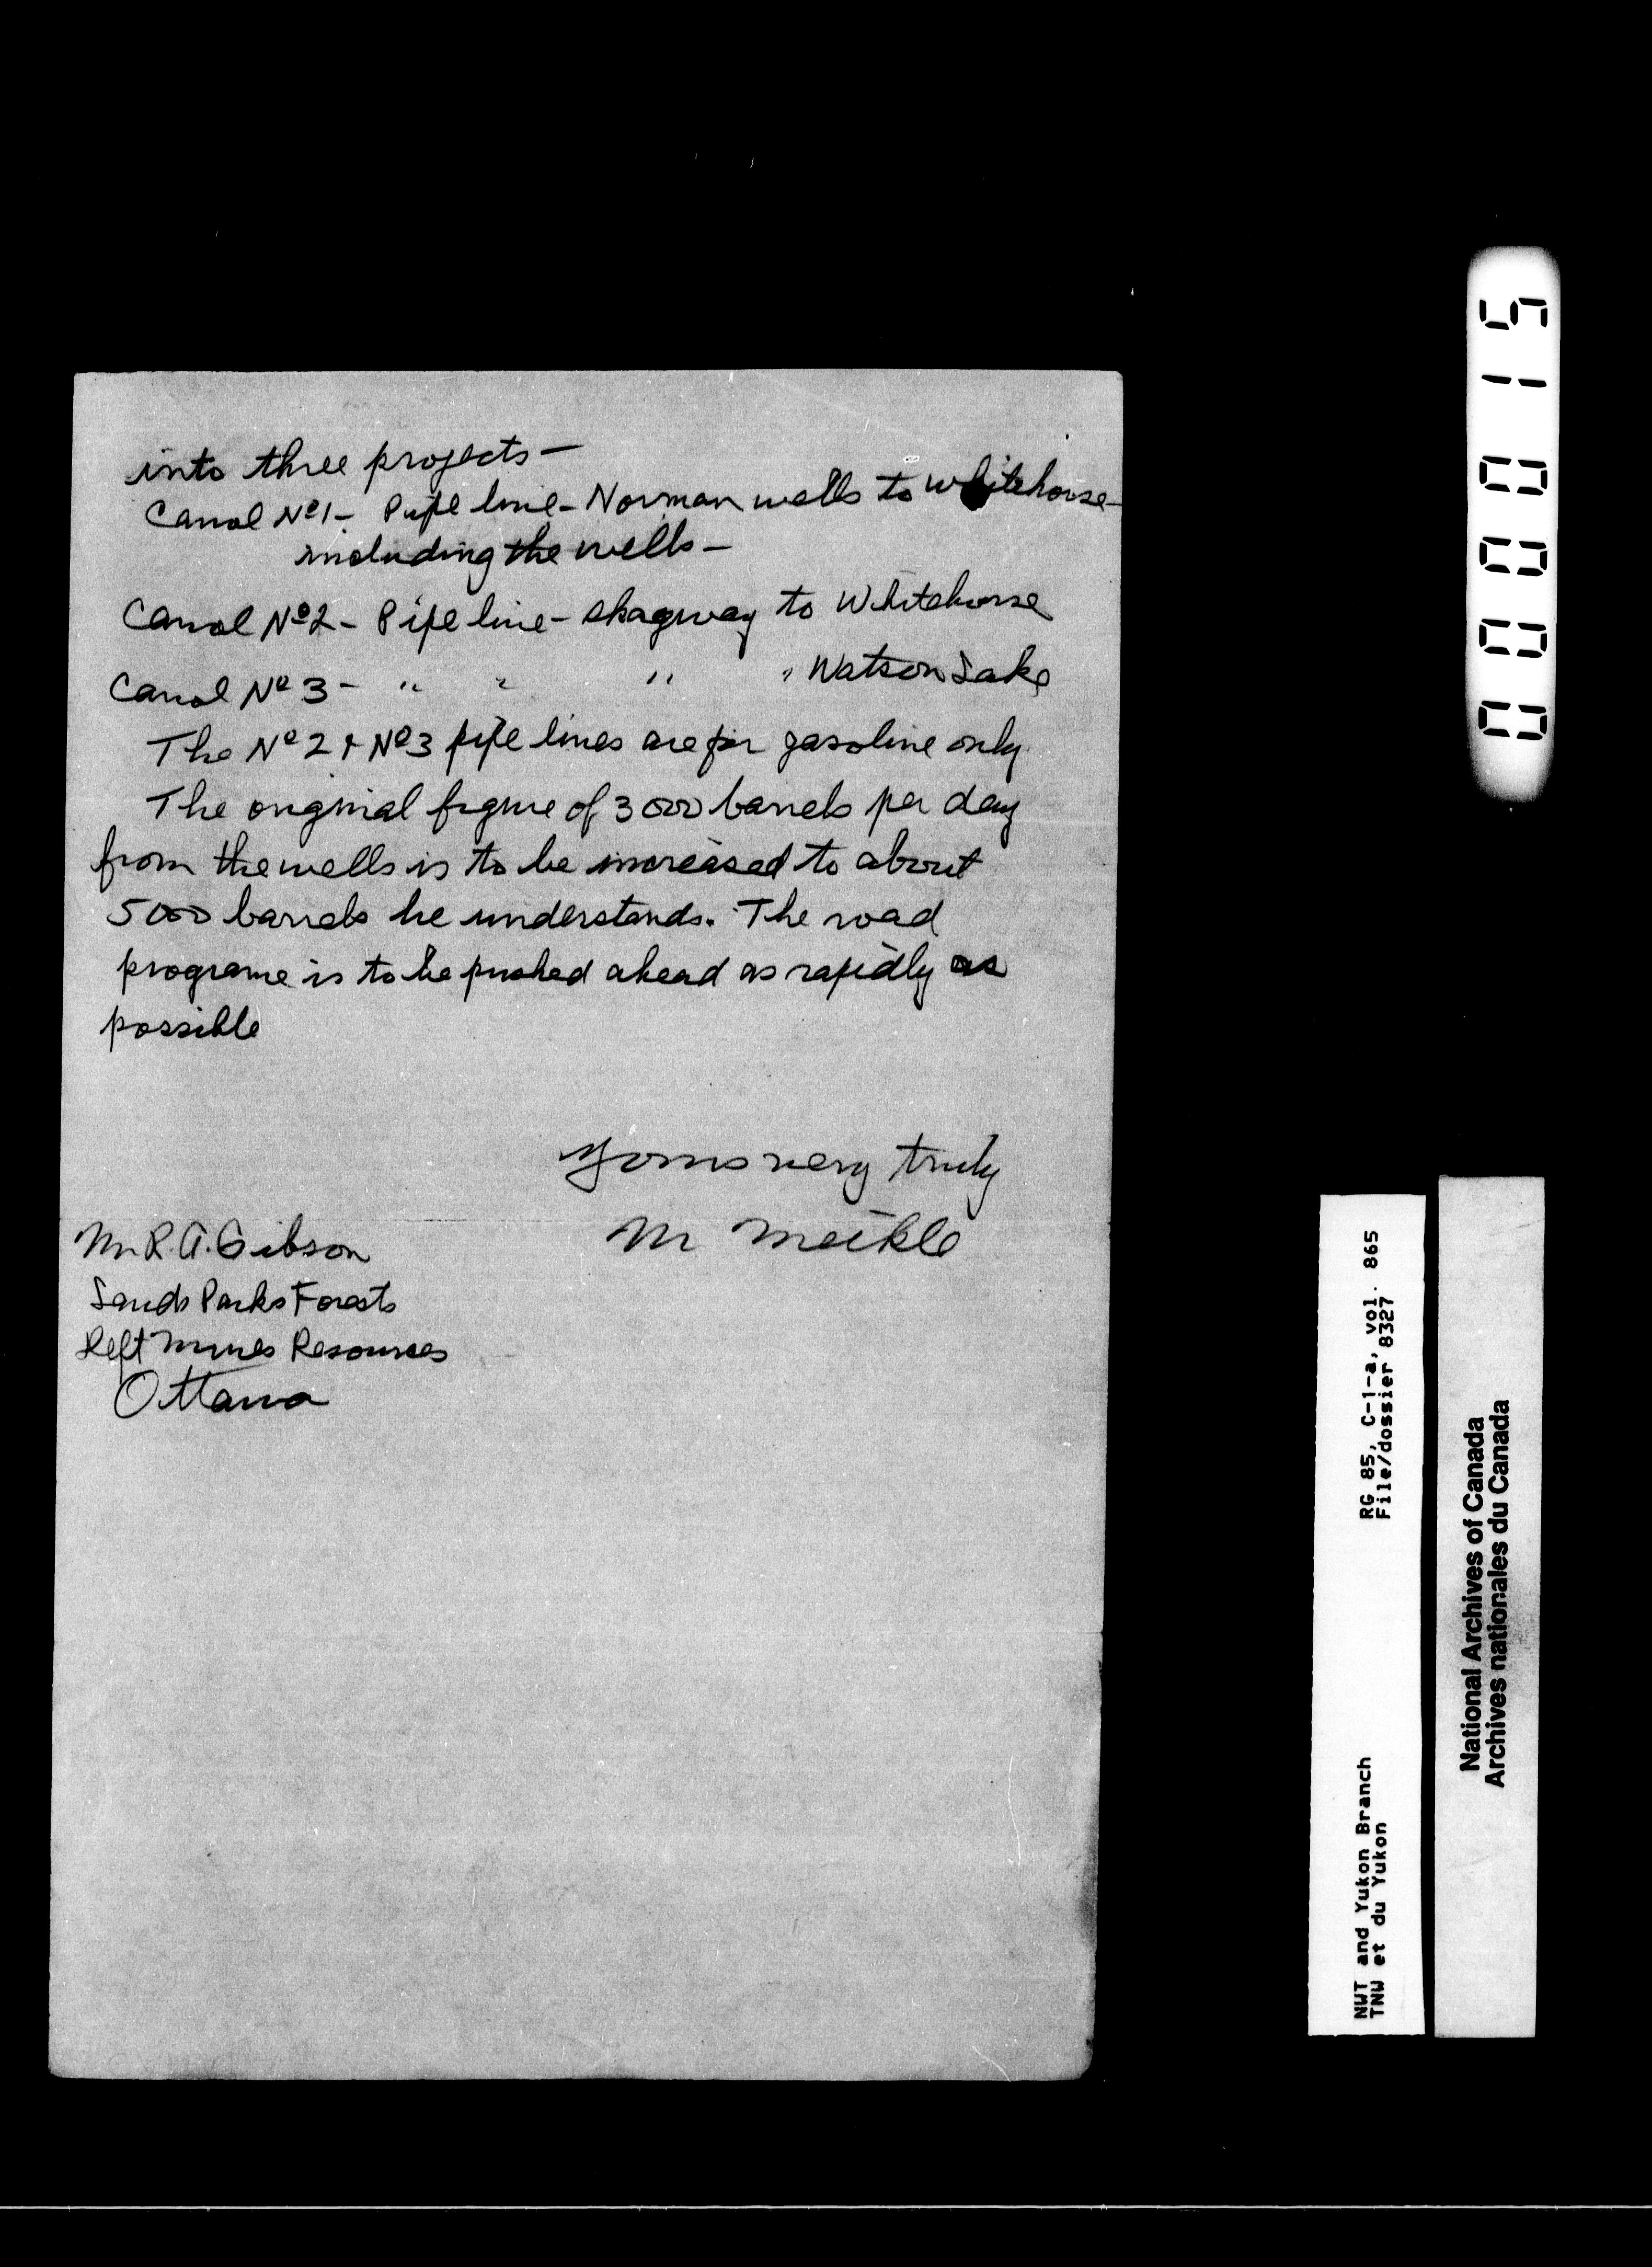 into three projects —
Canol Nº1 - Pipe line - Norman wells to Whitehorse -
including the wells -
Canol Nº2 - Pipe line - Skagway to Whitehorse
Canol Nº 3 - " " " " Watson Lake
The Nº 2 & Nº3 pipe lines are for gasoline only
The original figure of 3000 barrels per day
from the wells is to be increased to about
5000 barrels he understands. The road
programe is to be pushed ahead as rapidly as
possible
Yours very truly
M Meikle
Mr R.A. Gibson
Lands Parks Forests
Dept Mines Resources
Ottawa
510000
RG 85, C-1-a, vol. 865
File/dossier 8327
NWT and Yukon Branch
TNW et du Yukon
National Archives of Canada
Archives nationales du Canada